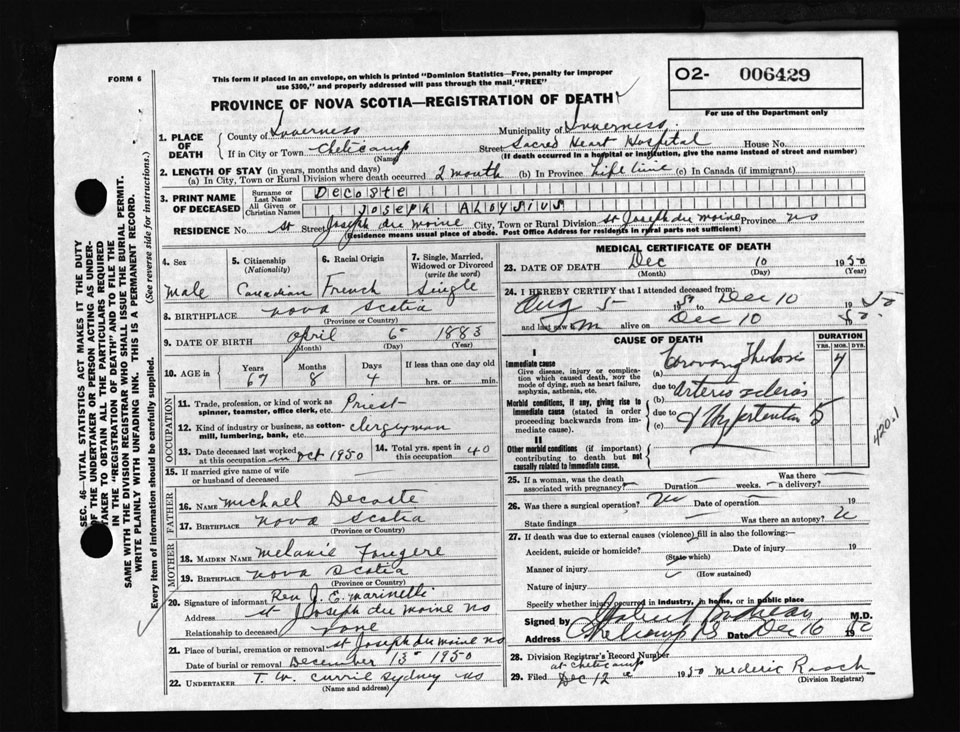 FORM 6
This form if placed in an envelope, on which is printed "Dominion Statistics—Free, penalty for improper
use $300," and properly addressed will pass through the mail "FREE"
PROVINCE OF NOVA SCOTIA—REGISTRATION OF DEATH
O2- 006429
For use of the Department only
SEC. 46—VITAL STATISTICS ACT MAKES IT THE DUTY
OF THE UNDERTAKER OR PERSON ACTING AS UNDER-
TAKER TO OBTAIN ALL THE PARTICULARS REQUIRED
IN THE "REGISTRATION OF DEATH" AND TO FILE THE
SAME WITH THE DIVISION REGISTRAR WHO SHALL ISSUE THE BURIAL PERMIT.
WRITE PLAINLY WITH UNFADING INK. THIS IS A PERMANENT RECORD.
Every item of information should be carefully supplied. (See reverse side for instructions.)
1. PLACE OF DEATH
County of Inverness Municipality of Inverness
If in City or Town Cheticamp Street Sacred Heart Hospital House No.
(Name) (If death occurred in a hospital or institution, give the name instead of street and number)
2. LENGTH OF STAY (in years, months and days)
(a) In City, Town or Rural Division where death occurred 2 month (b) In Province Life time (c) In Canada (if immigrant)
3. PRINT NAME OF DECEASED
Surname or Last Name Decoste
All Given or Christian Names Joseph Aloysius
RESIDENCE No. St Street Joseph du Moine City, Town or Rural Division St Joseph du Moine Province NS
(Residence means usual place of abode. Post Office Address for residents in rural parts not sufficient)
4. Sex Male
5. Citizenship (Nationality) Canadian
6. Racial Origin French
7. Single, Married, Widowed or Divorced (write the word) Single
8. BIRTHPLACE Nova Scotia
(Province or Country)
9. DATE OF BIRTH April 6 1883
(Month) (Day) (Year)
10. AGE in Years 67 Months 8 Days 4 If less than one day old
hrs. or min.
OCCUPATION
11. Trade, profession, or kind of work as spinner, teamster, office clerk, etc. Priest
12. Kind of industry or business, as cotton-mill, lumbering, bank, etc. clergyman
13. Date deceased last worked at this occupation in Oct 1950
14. Total yrs. spent in this occupation 40
15. If married give name of wife or husband of deceased
FATHER
16. NAME Michael Decoste
17. BIRTHPLACE Nova Scotia
(Province or Country)
MOTHER
18. MAIDEN NAME Melanie Fougere
19. BIRTHPLACE Nova Scotia
(Province or Country)
20. Signature of informant Rev J. E. Marinelli
Address St Joseph du Moine NS
Relationship to deceased none
21. Place of burial, cremation or removal St Joseph du Moine NS
Date of burial or removal December 13 1950
22. UNDERTAKER T. W. Curril Sydney NS
(Name and address)
MEDICAL CERTIFICATE OF DEATH
23. DATE OF DEATH Dec 10 1950
(Month) (Day) (Year)
24. I HEREBY CERTIFY that I attended deceased from:
Aug 5 1950 to Dec 10 1950
and last saw m alive on Dec 10 1950.
CAUSE OF DEATH
DURATION
YRS. MOS. DYS.
I
Immediate cause
Give disease, injury or complication which caused death, not the mode of dying, such as heart failure, asphyxia, asthenia, etc.
(a) Coronary Thrombosis 4
due to
(b) Arterio sclerosis
Morbid conditions, if any, giving rise to immediate cause (stated in order proceeding backwards from immediate cause).
due to
(c) & Hypertention 5
420.1
II
Other morbid conditions (if important) contributing to death but not causally related to immediate cause.
25. If a woman, was the death associated with pregnancy? Duration weeks. Was there a delivery?
26. Was there a surgical operation? No Date of operation 19
State findings Was there an autopsy?
27. If death was due to external causes (violence) fill in also the following:
Accident, suicide or homicide? Date of injury 19
(State which)
Manner of injury
(How sustained)
Nature of injury
Specify whether injury occurred in industry, in home, or in public place
Signed by M.D.
Address Cheticamp NS Date Dec 16 1950
28. Division Registrar's Record Number
at Cheticamp
29. Filed Dec 12 1950 Mederic Roach
(Division Registrar)